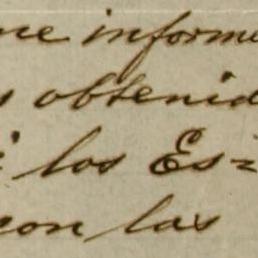 me informe
s obtenid
i los Es=
con las